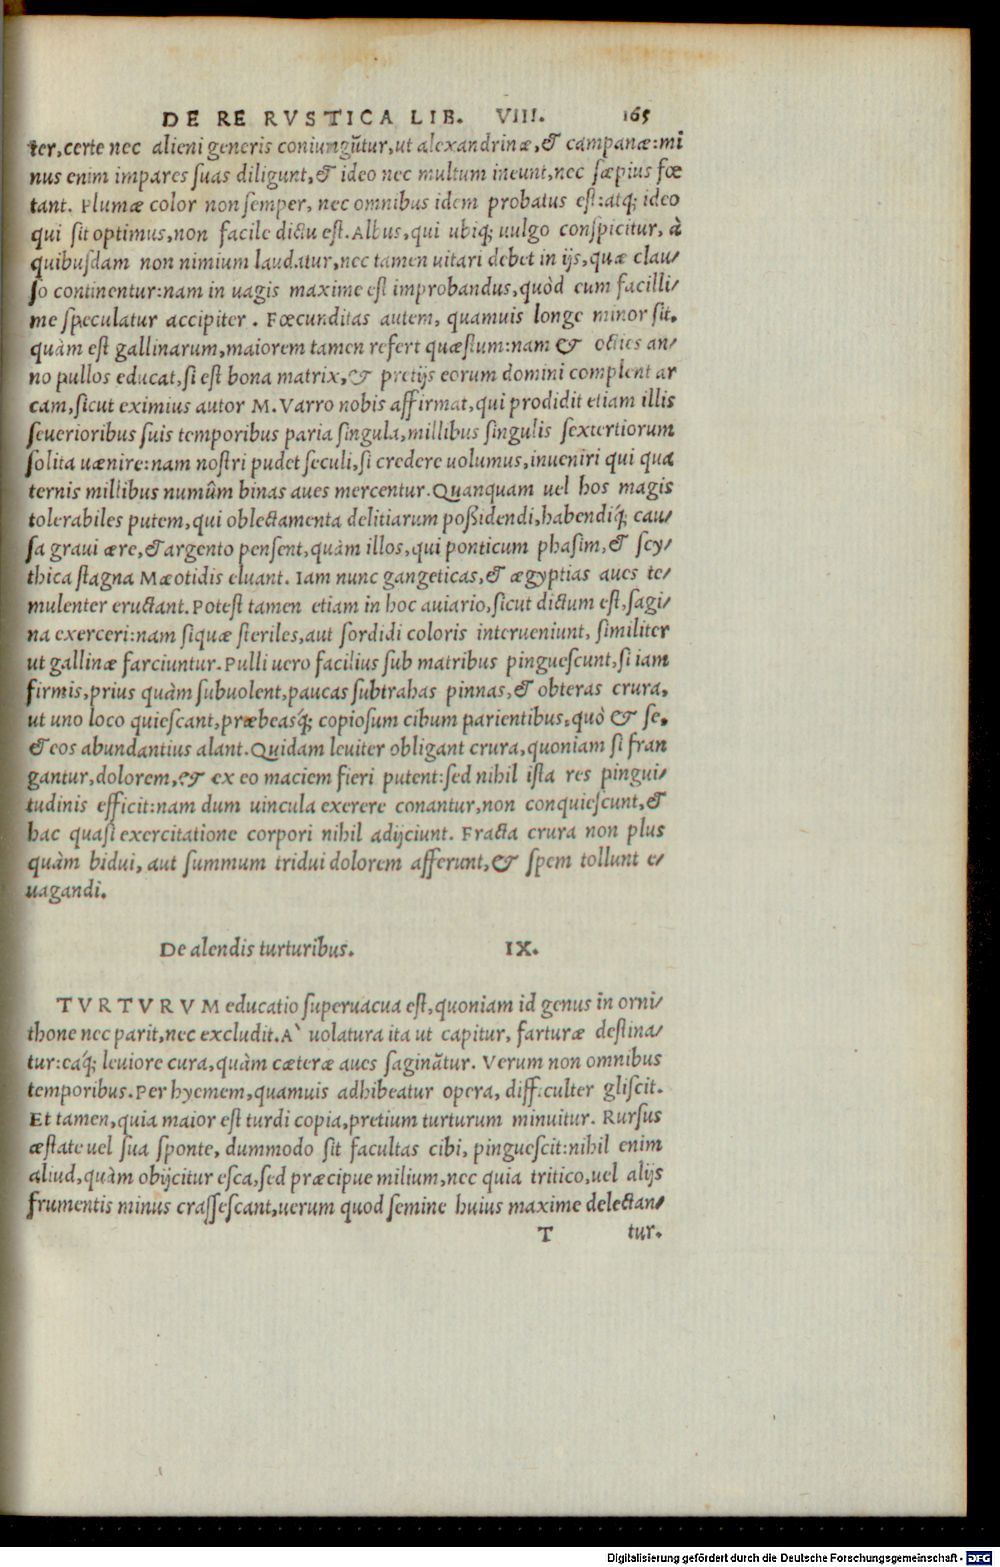 DE RE RVSTICA LIB. VIII. 165
ter, certe nec alieni generis coniungũtur, ut alexandrinæ, & campanæ: mi
nus enim impares suas diligunt, & ideo nec multum ineunt, nec sæpius fœ
tant. Plumæ color non semper, nec omnibus idem probatus est: atq; ideo
qui sit optimus, non facile dictu est. Albus, qui ubiq; uulgo conspicitur, à
quibusdam non nimium laudatur, nec tamen uitari debet in ijs, quæ clau/
so continentur: nam in uagis maxime est improbandus, quòd eum facilli/
me speculatur accipiter. Fœcunditas autem, quamuis longe minor sit.
quàm est gallinarum, maiorem tamen refert quæstum: nam & octies an/
no pullos educat, si est bona matrix, & pretijs eorum domini complent ar
cam, sicut eximius autor M. Varro nobis affirmat, qui prodidit etiam illis
seuerioribus suis temporibus paria singula, millibus singulis sextertiorum
solita uænire: nam nostri pudet seculi, si credere uolumus, inueniri qui qua
ternis millibus numûm binas aues mercentur. Quanquam uel hos magis
tolerabiles putem, qui oblectamenta delitiarum poßidendi, habendiq́; cau/
sa graui ære, & argento pensent, quàm illos, qui ponticum phasim, & scy/
thica stagna Mæotidis eluant. Iam nunc gangeticas, & ægyptias aues te/
mulenter eructant. Potest tamen etiam in hoc auiario, sicut dictum est, sagi/
na exerceri: nam siquæ steriles, aut sordidi coloris interueniunt, similiter
ut gallinæ farciuntur. Pulli uero facilius sub matribus pinguescunt, si iam
firmis, prius quàm subuolent, paucas subtrahas pinnas, & obteras crura,
ut uno loco quiescant, præbeasq́; copiosum cibum parientibus, quò & se.
& eos abundantius alant. Quidam leuiter obligant crura, quoniam si fran
gantur, dolorem, & ex eo maciem fieri putent: sed nihil ista res pingui/
tudinis efficit: nam dum uincula exerere conantur, non conquiescunt, &
hac quasi exercitatione corpori nihil adijciunt. Fracta crura non plus
quàm bidui, aut summum tridui dolorem afferunt, & spem tollunt e/
uagandi.
De alendis turturibus. IX.
TVRTVRVM educatio superuacua est, quoniam id genus in orni/
thone nec parit, nec excludit. A` uolatura ita ut capitur, farturæ destina/
tur: eaq́; leuiore cura, quàm cæteræ aues saginãtur. Verum non omnibus
temporibus. Per hyemem, quamuis adhibeatur opera, difficulter gliscit.
Et tamen, quia maior est turdi copia, pretium turturum minuitur. Rursus
æstate uel sua sponte, dummodo sit facultas cibi, pinguescit: nihil enim
aliud, quàm obijcitur esca, sed præcipue milium, nec quia tritico, uel alijs
frumentis minus crassescant, uerum quod semine huius maxime delectan/
T tur.
Digitalisierung gefördert durch die Deutsche Forschungsgemeinschaft - DFG